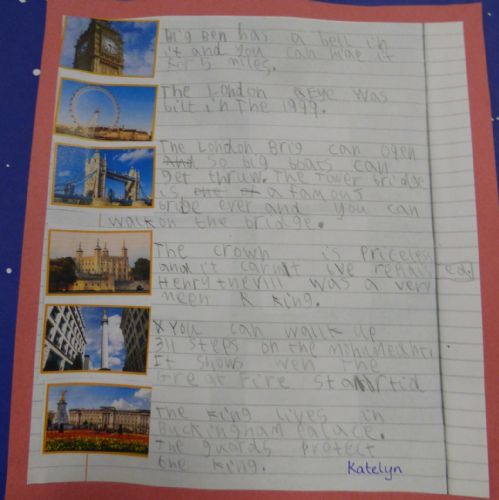 Big Ben has a bell in
it and you can hae it
for 5 miles.
The London Eye was
bilt in The 1999.
The London Brig can open
And so big boats can
get thruw. The Tower bridge
is a famous
bribe ever and you can
walk on the bridge.
The crown is priceless
and it carnt ive repaired.
Henry theVIII was a very
meen K King.
You can walk up
311 steps on the
It shows wen the
Great Fire startid
the King lives in
Buckingham Palace.
The guards protect
the King.
Katelyn